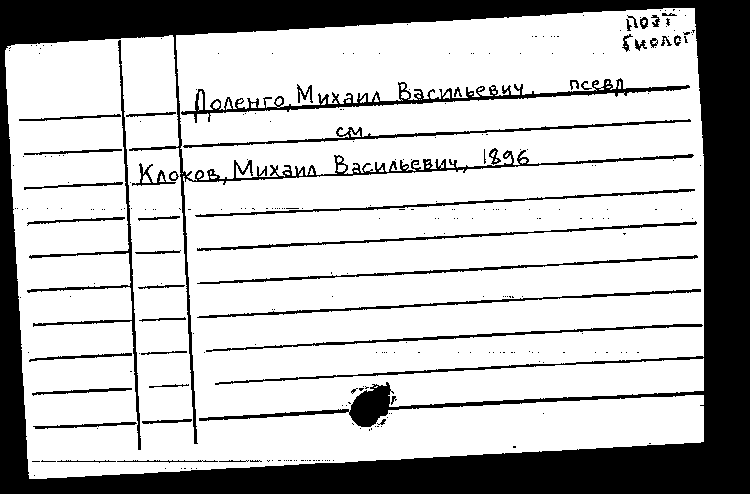 поэт
биолог
Доленго, Михаил Васильевич. псевд.
см.
Клоков, Михаил Васильевич, 1896